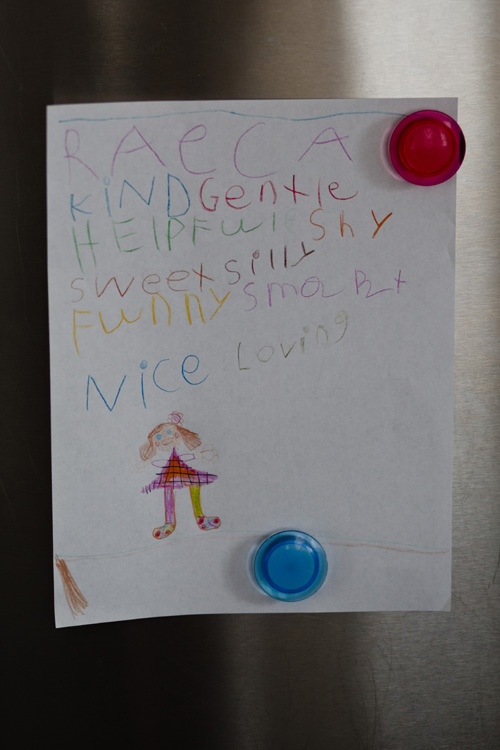 RAeCA
KiND Gentle
HElPFwl Shy
Sweet silly
Fwnny SmaRt
Nice Loving